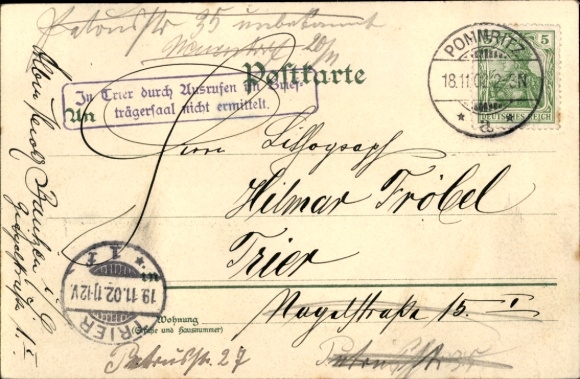 Petrusstr 35 unbekannt
20/11
Postkarte
In Trier durch Ausrufen im Brief-
trägersaal nicht ermittelt.
An
POMMRITZ
18.11.02. 2-3N
* a *
5
DEUTSCHES REICH
Herrn Lithograph
Hilmar Fröbel
Trier
in
Nagelstraße 15. I
Wohnung
(Straße und Hausnummer)
Petrusstr. 27
Petrusstr 35
TRIER
19.11.02.11-12V
* 1 f
Bautzen i/S.